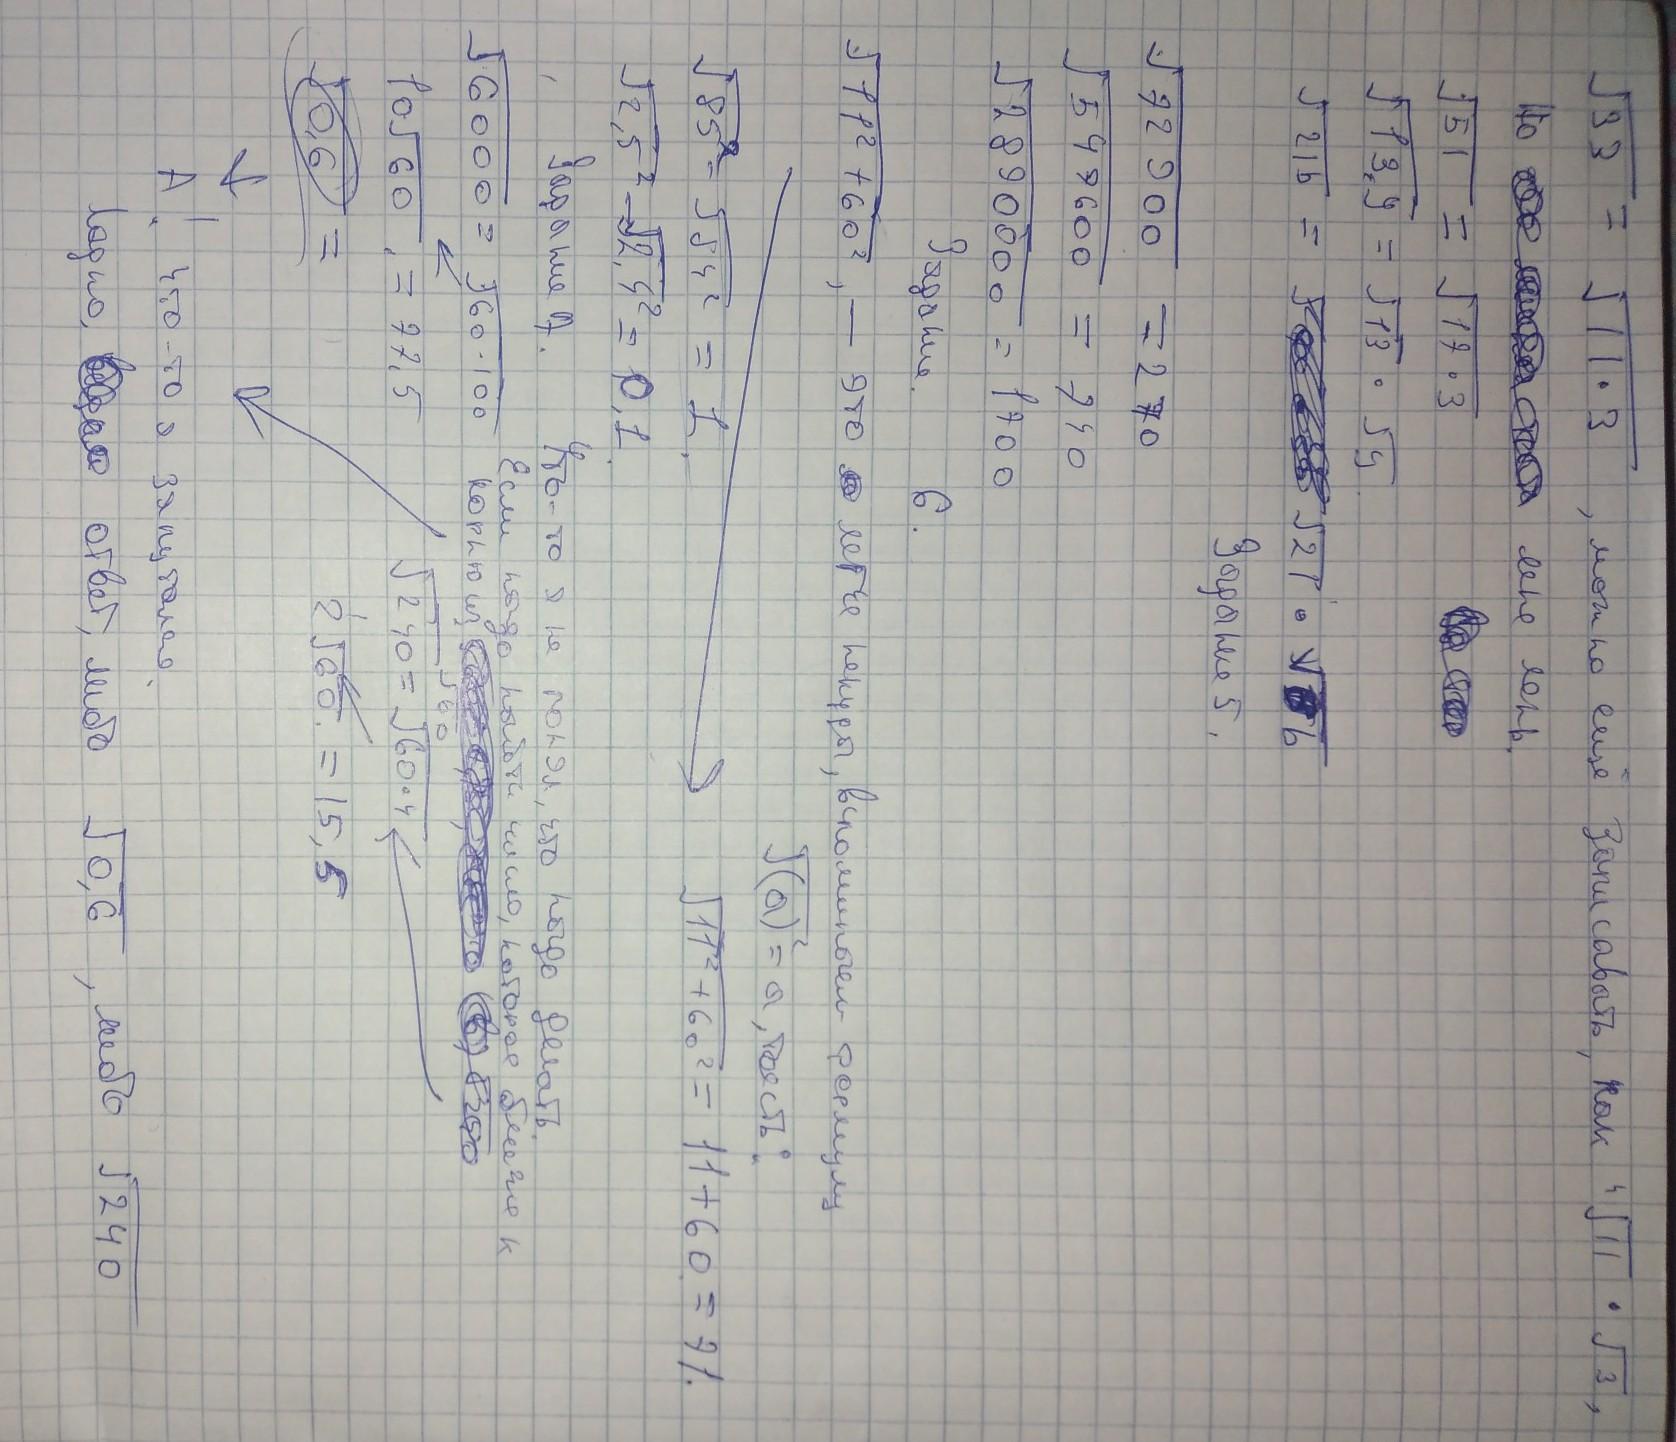 √33 = √11·3, можно ещё записавать, как √11 · √3,
Но мне лень.
√51 = √17·3
√13,y = √13 · √y
√21b = √21 · √b
Задание 5.
√72900 = 270
√547600 = 740
√2890000 = 1700
Задание 6.
√11² + 60², — это легче некуды, вспоминаем формулу
√(a)² = a, тоесть:
√85² = √84² = 1. √11² + 60² = 11 + 60 = 71.
√2,5² - √2,4² = 0,1.
Задание 7. Что-то я не понял, что надо делать.
Если надо найти число, которое ближе к
√6000 = √60·100 корню из
10√60, = 77,5 √240 = √60·4
√60
√0,6 = 2√60 = 15,5
А! что-то я запутался.
Ладно, ответ, либо √0,6, либо √240